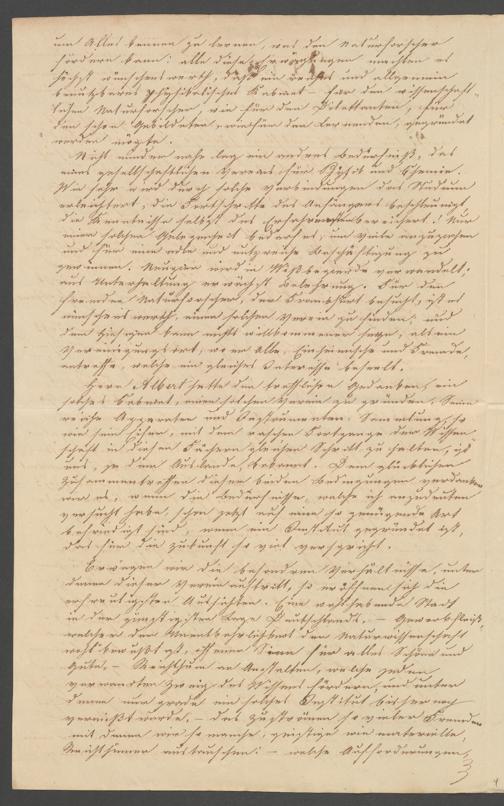 um Alles kennen zu lernen, was den Naturforscher
fördern kann: alle diese Erwägungen machten es
höchst wünschenswerth, daß ein und allgemein
benutzbares physikalisches Kabinet – für den wissenschaft-
lichen Naturforscher, wie für den Dilettanten, für
den schon Gebildeten, wie für den Lernenden, gegründet
werden mögte.
Nicht minder nahe lag ein anderes Bedürfniß, das
eines gesellschaftlichen Vereins für Physik und Chemie.
Wie sehr wird durch solche Verbindungen das Studium
erleichtert, die Fortschritte des Anfängers beschleunigt,
die Kenntnisse selbst des Erfahrenen bereichert! Nur
einer solchen Gelegenheit bedarf es, um Viele anzuziehen
und für eine edle und nutzreiche Beschäftigung zu
gewinnen. Neugier wird in Wißbegierde verwandelt;
aus Unterhaltung erwächst Belehrung. Für den
fremden Naturforscher, der Frankfurt besucht, ist es
wünschenswerth, einen solchen Verein zu finden; und
dem Hiesigen kann nichts willkommener seyn, als ein
Vereinigungsort, wo er alle, Einheimische und Fremde,
antreffe, welche ein gleiches Interesse beseelt.
Herr Albert hatte den trefflichen Gedanken, ein
solches Cabinet, einen solchen Verein zu gründen. Seine
reiche Apparaten und Instrumenten Sammlung, so
wie sein Eifer, mit dem raschen Fortgange der Wissen-
schaft in diesen Fächern gleichen Schritt zu halten, ist
uns, ja dem Auslande, bekannt. Dem glücklichen
Zusammentreffen dieser beiden Bedingungen verdanken
wir es, wenn die Bedürfnisse, welche ich anzudeuten
versucht habe, schon jetzt auf eine so genügende Art
befriedigt sind, wenn ein Institut gegründet ist,
das für die Zukunft so viel verspricht.
Erwägen wir die besonderen Verhältnisse, unter
denen dieser Verein auftritt, so eröffnen sich die
erfreulichsten Aussichten. Eine wohlhabende Stadt
in der günstigsten Lage Deutschlands. – Gewerbfleiß,
welcher der Unentbehrlichkeit der Naturwissenschaft
wohl bewußt ist, offener Sinn für alles Schöne und
Gute, – Reichthum an Anstalten, welche jeden
verwandten Zweig des Wissens fördern, und unter
denen nur grade ein solches Institut bisher noch
vermißt wurde, – das Zuströmen so vieler Fremden
mit denen wir so manche, geistige wie materielle,
Reichthümer austauschen: – welche Aufforderungen,